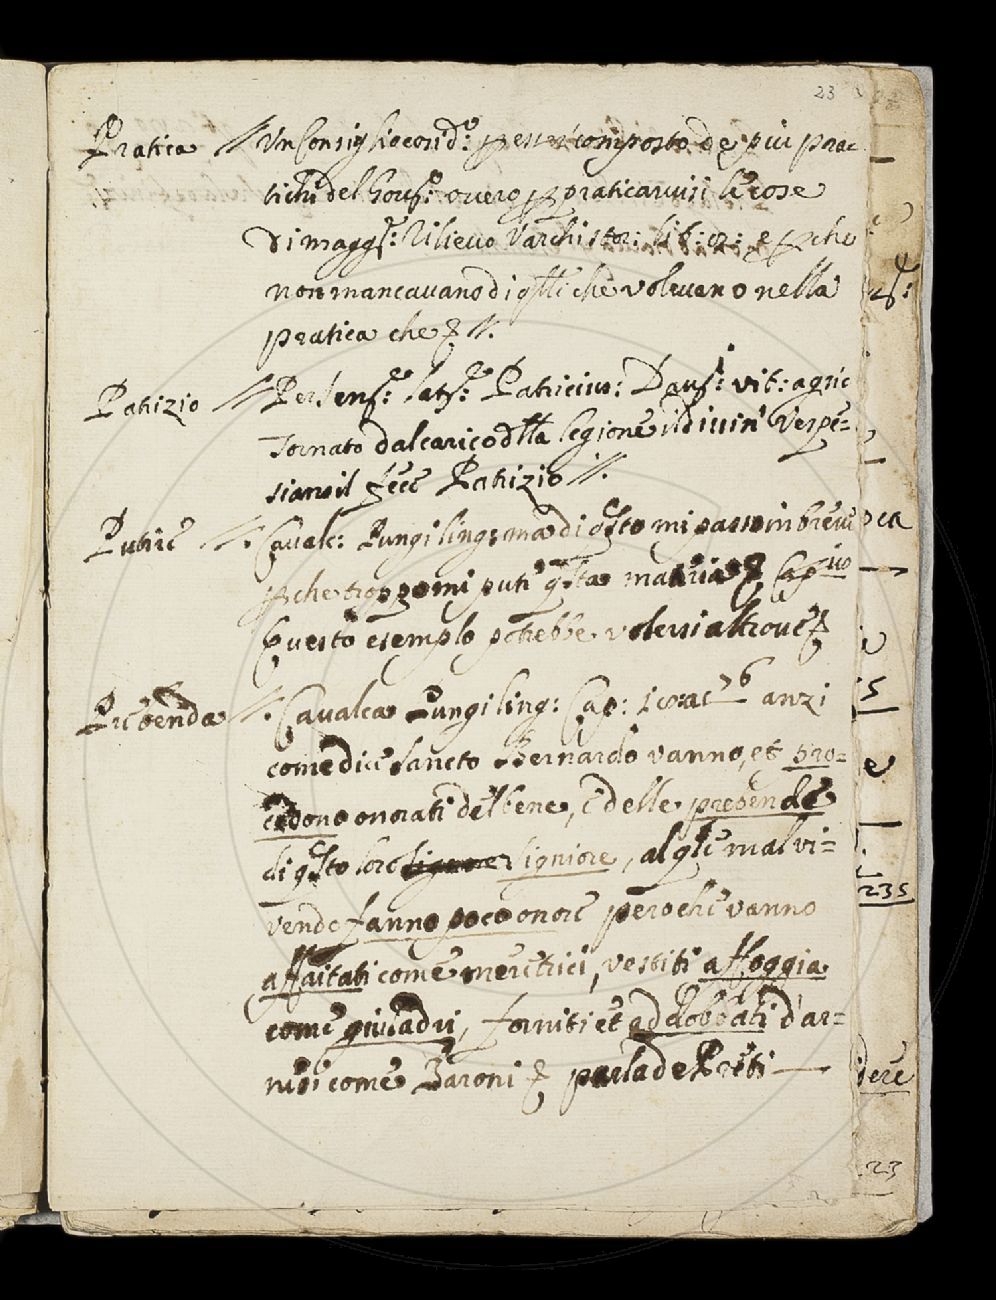 23
Pratica // Un Consiglio cosi d:º p esser composto de piu pra=
tichi del Gou:º overo p praticarvisi le cose
di magg:r Rilievo Varchi stor: lib: e pche
non mancavano di q̃lli che volevano nella
pratica che &c //.
Patrizio // Per sens:e lat: Patricius: Dav: vit: agric
Tornato dal carico d̃lla legione il divin' Vespe=
siano il fece Patrizio //.
Putire //. Cavalc: Pungiling: ma di q̃sto mi passo in breve
pche troppo mi pute q̃sta materia &c Cap
Questo esemplo potrebbe volersi altrove &c
Prebenda //. Cavalca Pungiling: Cap: 76 anzi
come dice Sancto Bernardo vanno, et pro=
cedono onorati del bene, e delle prebende
di q̃sto loro signore, al q̃le mal vi=
vendo fanno poco onore peroche vanno
affaitati come meretrici, vestiti affoggia
come giuladri, forniti et addobbati d'ar=
nesi come Baroni &c parla de Preti —
235
dere
23